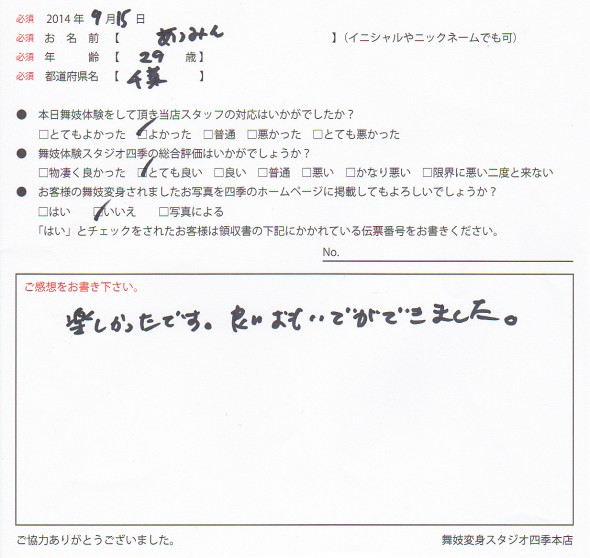 必須 2014年 9月15日
必須 お名前【 あつみん 】(イニシャルやニックネームでも可)
必須 年齢【 29 歳】
必須 都道府県名【 千葉 】
● 本日舞妓体験をして頂き当店スタッフの対応はいかがでしたか?
□とてもよかった ☑よかった □普通 □悪かった □とても悪かった
● 舞妓体験スタジオ四季の総合評価はいかがでしょうか?
□物凄く良かった ☑とても良い □良い □普通 □悪い □かなり悪い □限界に悪い二度と来ない
● お客様の舞妓変身されましたお写真を四季のホームページに掲載してもよろしいでしょうか?
□はい ☑いいえ □写真による
「はい」とチェックをされたお客様は領収書の下記にかかれている伝票番号をお書きください。
No.
ご感想をお書き下さい。
楽しかったです。良いおもいでができました。
ご協力ありがとうございました。 舞妓変身スタジオ四季本店